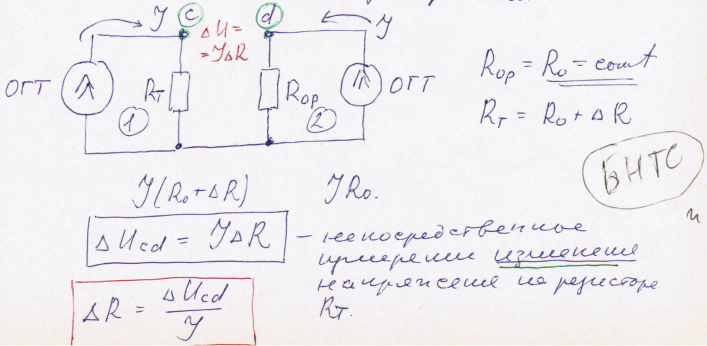 J c ΔU= d J
=JΔR
ОГТ RT 1 Rор 2 ОГТ
Rор = R₀ = const
RT = R₀ + ΔR
БНТС
J(R₀+ΔR) JR₀.
ΔUcd = JΔR – непосредственное
измерении изменения
напряжения на резисторе
RT.
ΔR = ΔUcd / J
и